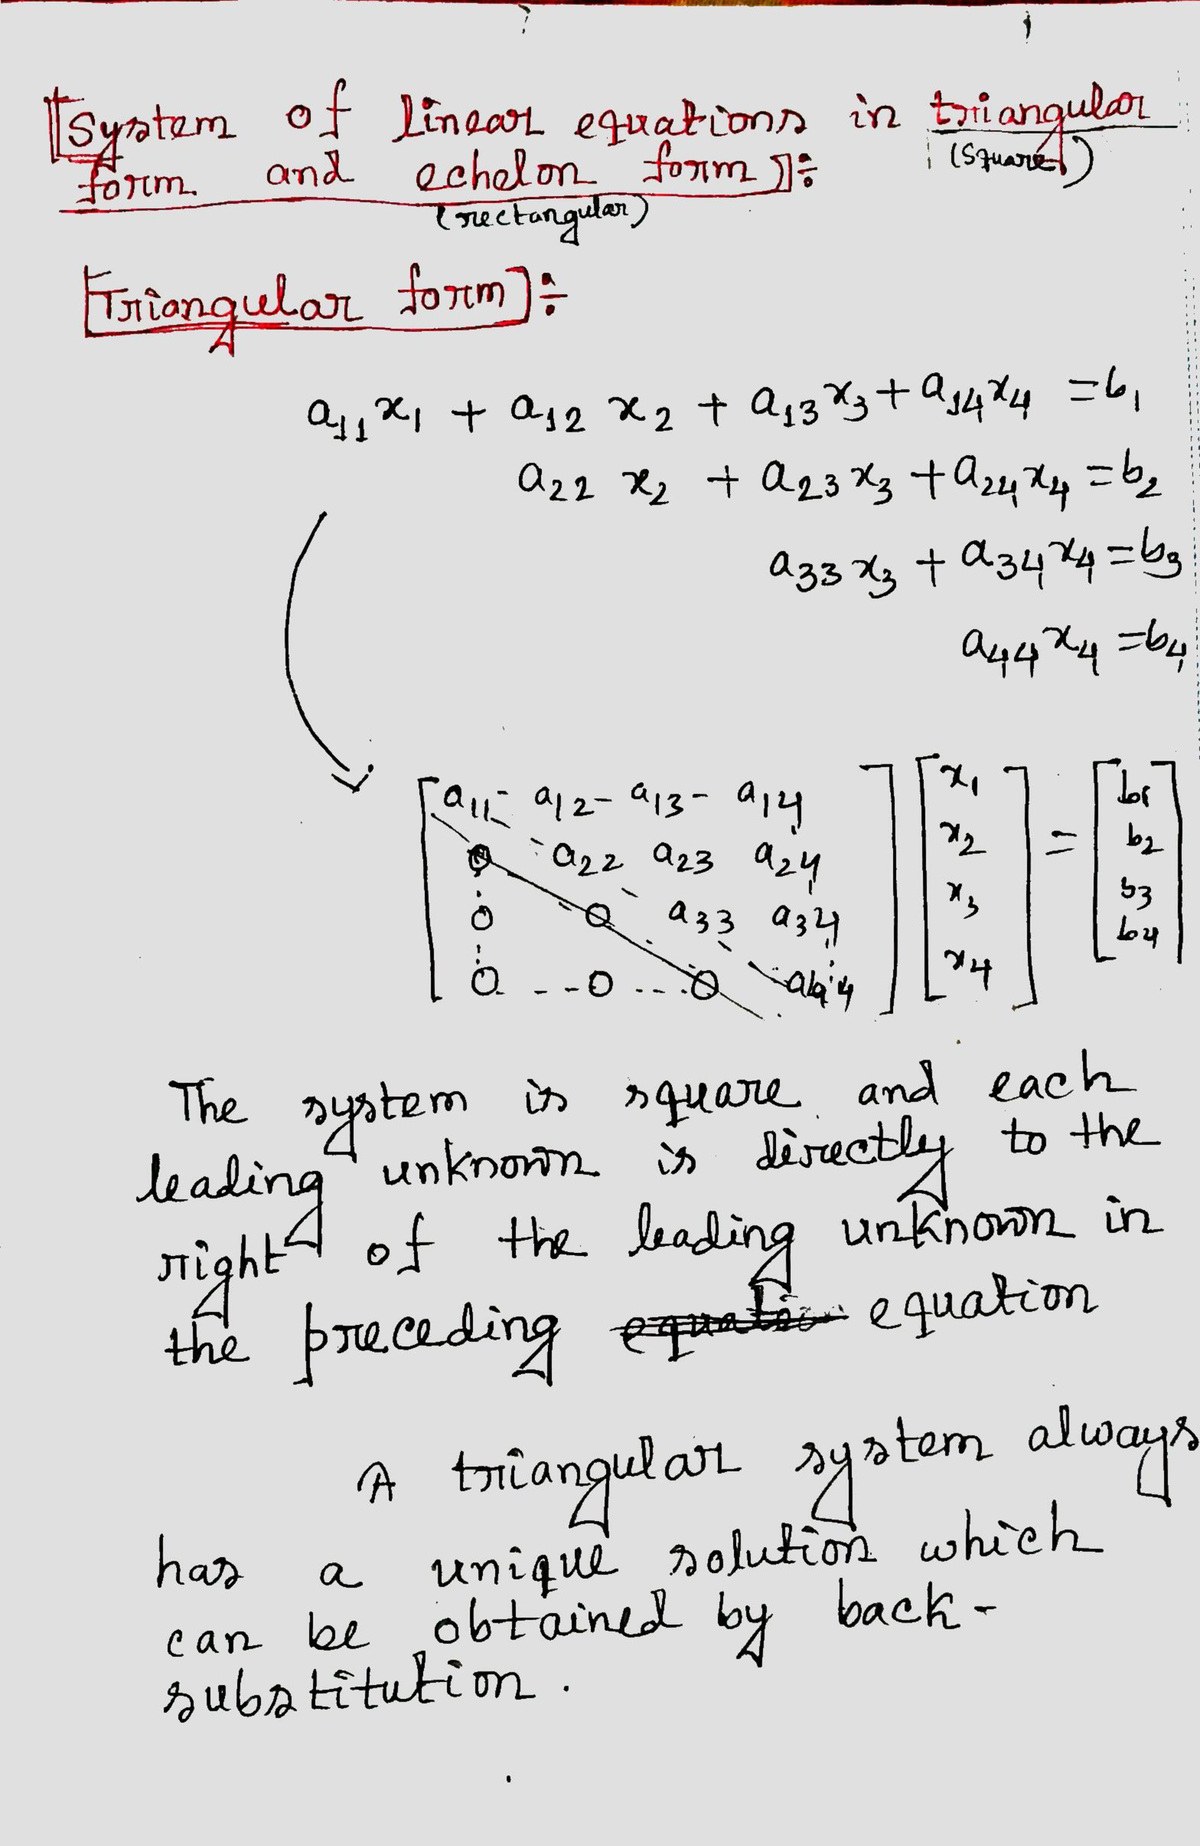 [System of linear equations in triangular
(square)
form and echelon form]÷
(rectangular)
[Triangular form]÷
a11x1 + a12 x2 + a13x3 + a14x4 = b1
a22 x2 + a23x3 + a24x4 = b2
a33x3 + a34x4 = b3
a44x4 = b4
[a11 - a12 - a13 - a14] [x1] = [b1]
0 a22 a23 a24 x2 b2
0 0 a33 a34 x3 b3
0 0 0 a44 x4 b4
The system is square and each
leading unknown is directly to the
right of the leading unknown in
the preceding equation
A triangular system always
has a unique solution which
can be obtained by back-
substitution.